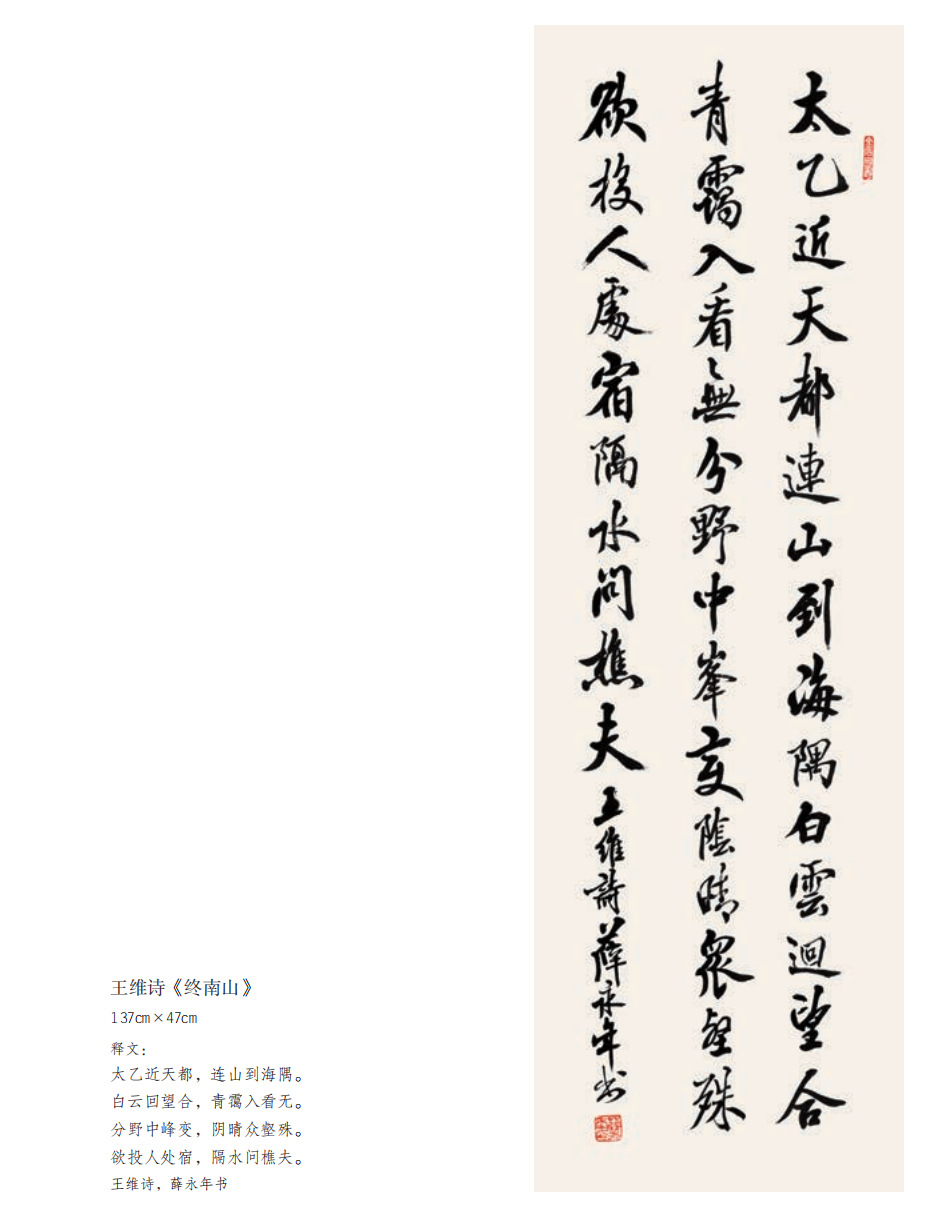 太乙近天都連山到海隅白雲迴望合
青靄入看無分野中峯变陰晴衆壑殊
欲投人處宿隔水问樵夫王維詩薛永年书
王维诗《终南山》
137cm×47cm
释文：
太乙近天都，连山到海隅。
白云回望合，青霭入看无。
分野中峰变，阴晴众壑殊。
欲投人处宿，隔水问樵夫。
王维诗，薛永年书